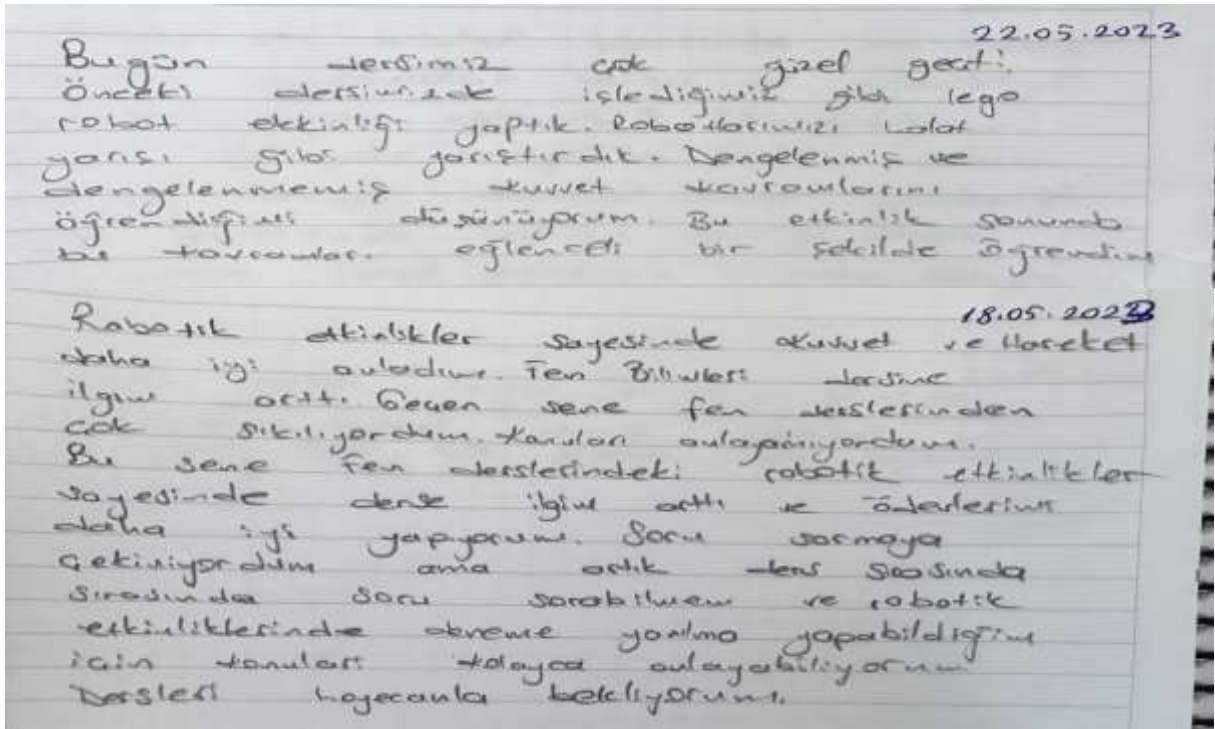 22.05.2023
Bugün dersimiz çok güzel geçti.
Önceki dersimizde işlediğimiz gibi lego
robot etkinliği yaptık. Robotlarımızı halat
yarışı gibi yarıştırdık. Dengelenmiş ve
dengelenmemiş kuvvet kavramlarını
öğrendiğimi düşünüyorum. Bu etkinlik sonunda
bu kavramları eğlenceli bir şekilde öğrendim
18.05.2023
Robotik etkinlikler sayesinde Kuvvet ve Hareket
daha iyi anladım. Fen Bilimleri dersine
ilgim arttı. Geçen sene fen derslerinden
çok sıkılıyordum. Konuları anlayamıyordum.
Bu sene Fen derslerindeki robotik etkinlikler
sayesinde derse ilgim arttı ve ödevlerimi
daha iyi yapıyorum. Soru sormaya
çekiniyordum ama artık ders sırasında
sırasında soru sorabilmem ve robotik
etkinliklerinde deneme yanılma yapabildiğim
için konuları kolayca anlayabiliyorum.
Dersleri heyecanla bekliyorum.